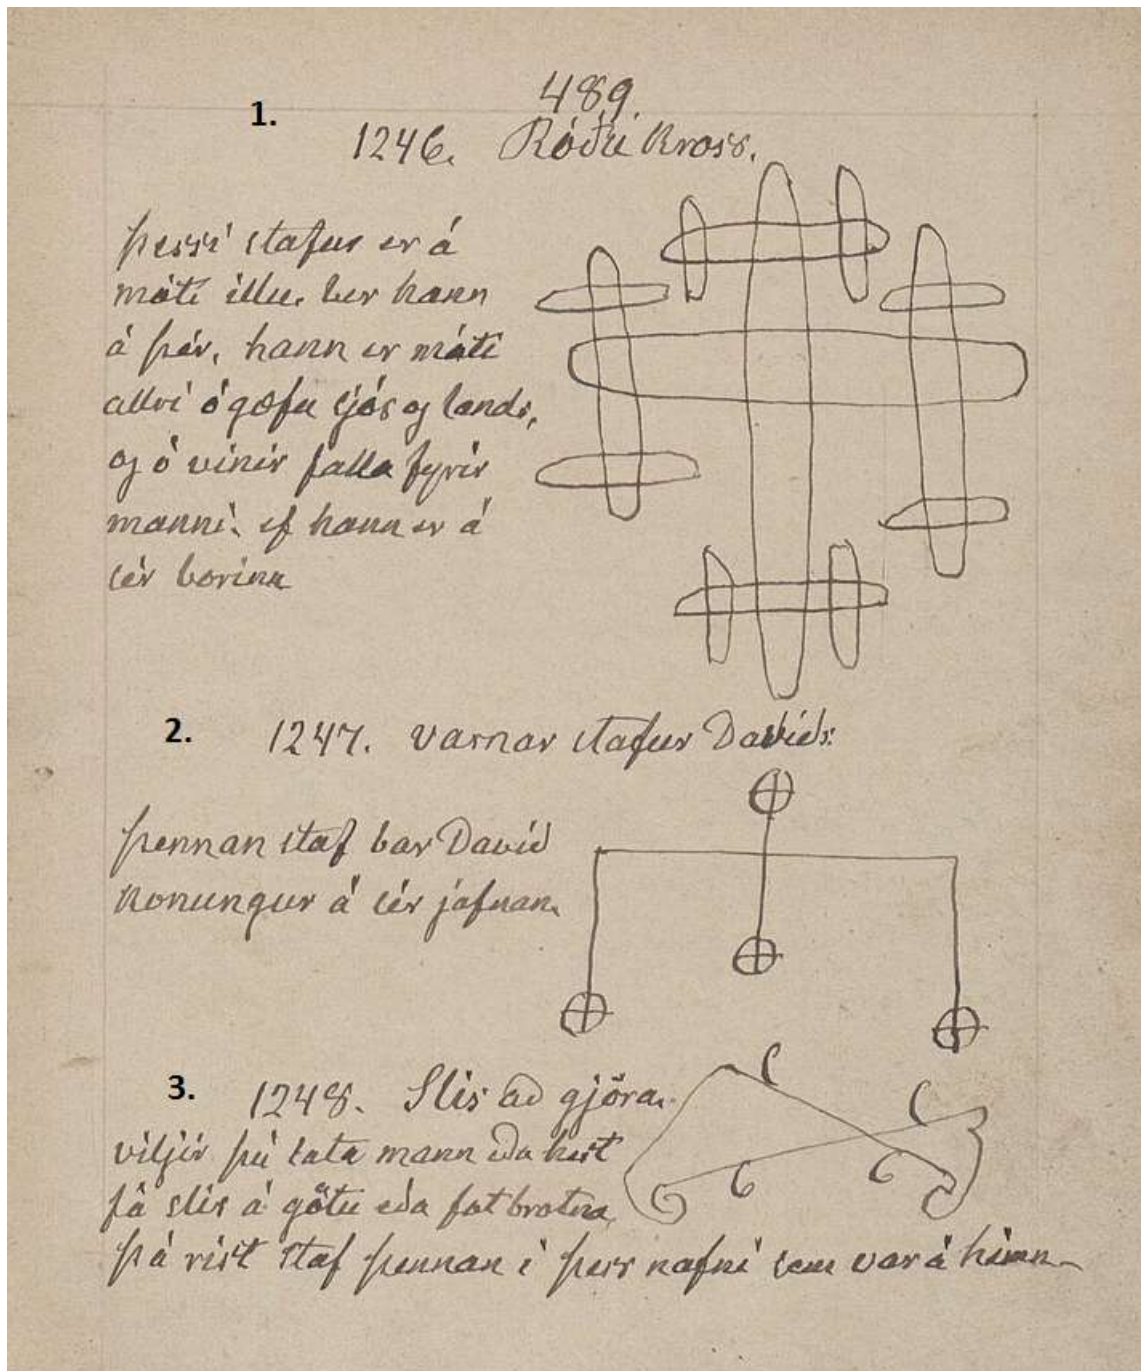 489.
1.
1246. Róðu Kross.
þessi stafur er á
móti illu. ber hann
á þér, hann er móti
allri ó gæfu sjós og lands,
og ó vinir falla fyrir
manni. ef hann er á
sér borinn
2.
1247. varnar stafur Davíðs.
þennan staf bar Davíð
Konungur á sér jafnan.
3.
1248. Slis að gjöra.
viljir þú lata mann eða hest
fá slis á götu eða fotbrotna,
þá rist staf þennan i þess nafni sem var á himn-